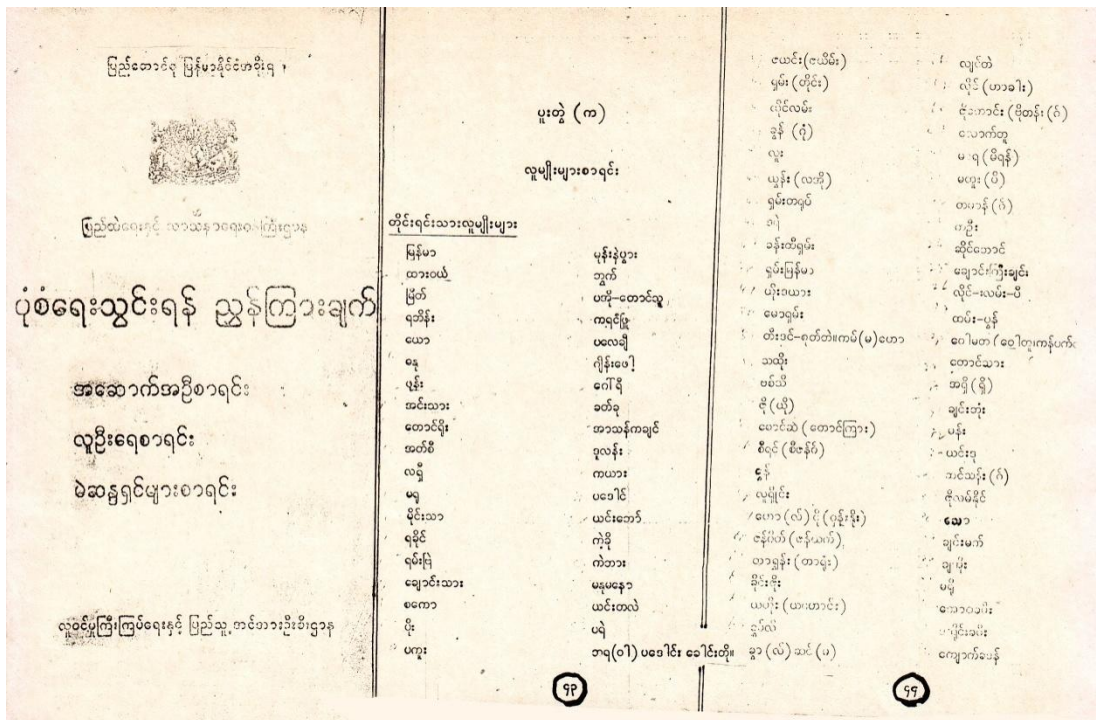 ပြည်ထောင်စု မြန်မာနိုင်ငံအစိုးရ
ပြည်ထဲရေးနှင့် သာသနာရေးဝန်ကြီးဌာန
ပုံစံရေးသွင်းရန် ညွှန်ကြားချက်
အဆောက်အဦစာရင်း
လူဦးရေစာရင်း
မဲဆန္ဒရှင်များစာရင်း
လူဝင်မှုကြီးကြပ်ရေးနှင့် ပြည်သူ့အင်အားဦးစီးဌာန
ပူးတွဲ (က)
လူမျိုးများစာရင်း
တိုင်းရင်းသားလူမျိုးများ
မြန်မာ
ထားဝယ်
မြိတ်
ရဘိန်း
ယော
ဓနု
ဖွန်း
အင်းသား
တောင်ရိုး
အတ်စီ
လရှီ
မရူ
မိုင်းသာ
ရခိုင်
ရမ်းဗြဲ
ချောင်းသား
စကော
ပိုး
ပကူး
မုန်းနဲပွား
ဘွက်
ပအို-တောင်သူ
ကရင်ဖြူ
ပလေချီ
ဂျိန်းဖေါ့
ဂေါ်ရီ
ခတ်ခု
အာသန်ကချင်
ဒုလန်း
ကယား
ပဒေါင်
ယင်းဘော်
ကဲ့ခို
ကဲဘား
မနုမနော
ယင်းတလဲ
ပရဲ
ဘရ(ဝါ) ပဒေါင်း ခေါင်းတို။
၄၃
ဇယင်း(ဇယိမ်း)
ရှမ်း (တိုင်း)
ယိုင်လမ်း
ခွန် (ဂုံ)
လူး
ယွန်း (လအို)
ရှမ်းတရုပ်
ခန်းတီရှမ်း
ရှမ်းမြန်မာ
ယိုးဒယား
မောရှမ်း
သထိုး
ဗစ်သီ
ငို (ယို)
မောင်ဆဲ (တောင်ကြား)
စီရင် (စီဇန်ဂ်)
ဇန်ဂ်တ် (ဇန်ယက်)
တာရွှန်း (တာရုံး)
ခိုင်းဇိုး
ယဟိုး (ယဟောင်း)
ခွာ (လ်) ဆင် (မ)
လျင်တဲ
လိုင် (ဟာခါး)
သောက်တူ
မာရ (မိရန်)
မတူး (ပီ)
တမာန် (ဂ်)
ကဦး
ဆိုင်ဘောင်
မချောင်းကြီးချင်း
လိုင်-လမ်း-ပီ
ထမ်း-ပွန်
တောင်သား
အရှို (ရှို)
ချင်းဘုံး
မန်း
ယင်းဒု
အင်သန်း (ဂ်)
ကိုလမ်နိုင်
သော
ချင်းမက်
မရို
ကျောက်ခမန်
၄၄